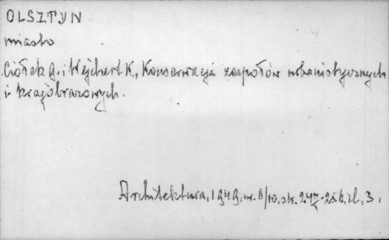 OLSZTYN
miasto
Ciołek G. i Wejchert K., Konserwacja zespołów urbanistycznych
i krajobrazowych.
Architektura, 1949, nr. 8/10, str. 247-256, il. 3.